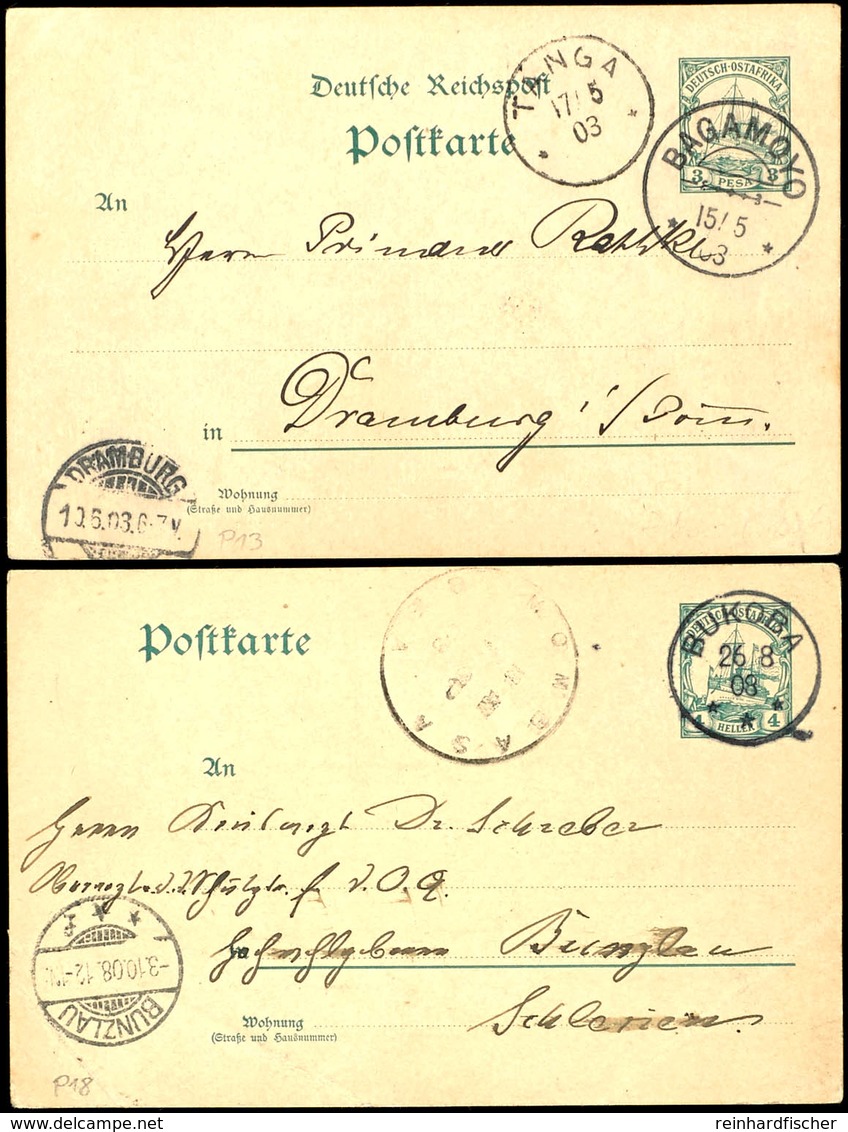 Deutsche Reichspost
Postkarte
TANGA
17/5
03
DEUTSCH-OSTAFRIKA
3 PESA 3
BAGAMOYO
15/5
03
An
Herrn Primaner
in Dramburg i/Pom.
DRAMBURG
10.6.03.6-7V.
Wohnung
(Straße und Hausnummer)
P13
Postkarte
MOMBASA
DEUTSCH-OSTAFRIKA
4
HELLER
BUKOBA
26 8
08
An
Herrn Dr. Schreber
f. D.O.A.
Bunzlau
Schlesien.
-3.10.08.12-
BUNZLAU
Wohnung
(Straße und Hausnummer)
P18
reinhardfischer